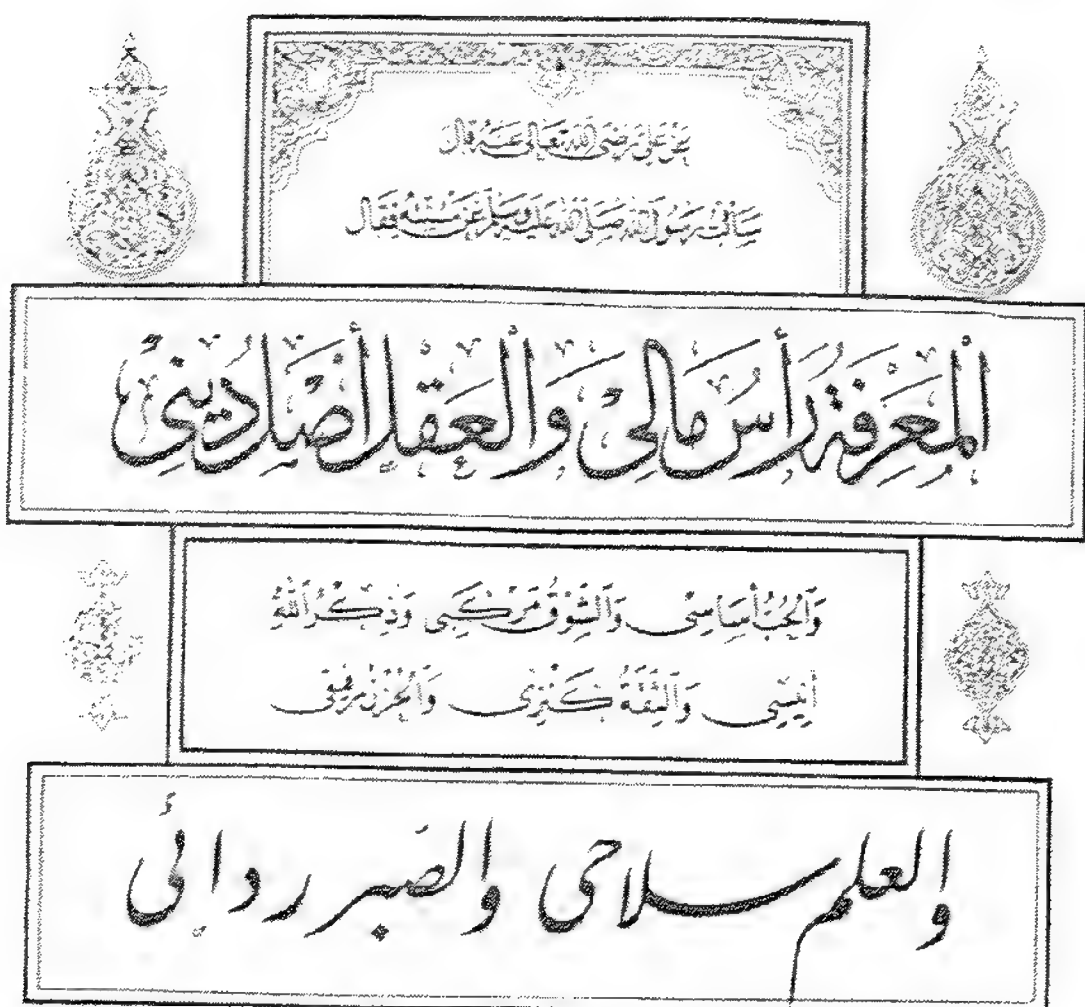 عن علي رضي الله تعالى عنه قال
سألت رسول الله صلى الله عليه وسلم عن سنته فقال
اَلْمَعْرِفَةُ رَأْسُ مَالِي وَالْعَقْلُ أَصْلُ دِينِي
وَالْحُبُّ أَسَاسِي وَالشَّوْقُ مَرْكَبِي وَذِكْرُ اللهِ
أَنِيسِي وَالثِّقَةُ كَنْزِي وَالْحُزْنُ رَفِيقِي
والعلم سلاحى والصبر ردائى